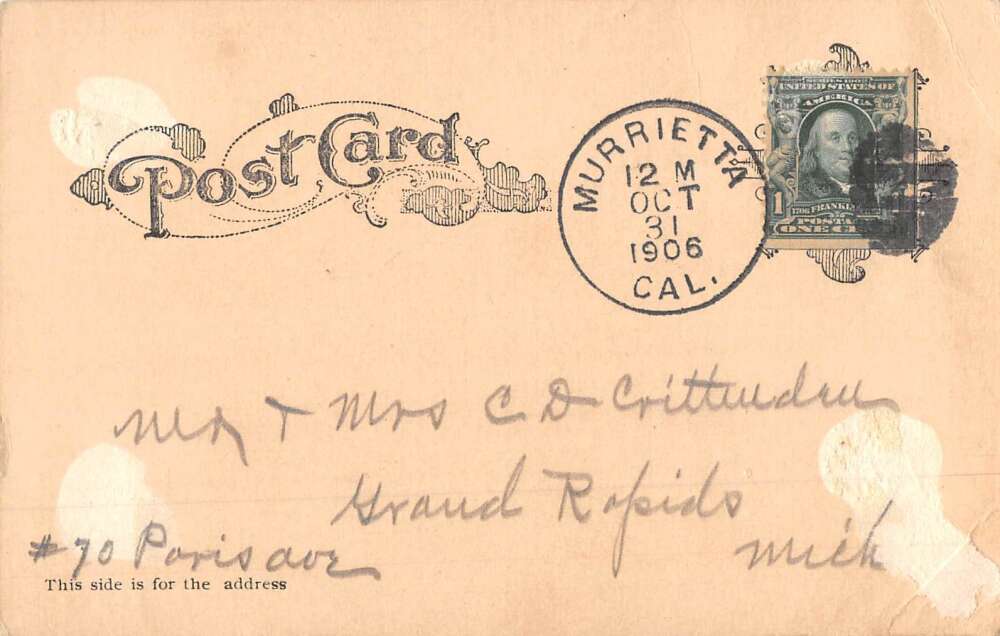 Post Card
MURRIETTA
12 M
OCT
31
1906
CAL.
SERIES 1902
UNITED STATES OF
AMERICA
1
1706 FRANKLIN
POSTA
ONE CE
Mr & Mrs C D Crittenden
Grand Rapids
Mich
#70 Paris ave
This side is for the address